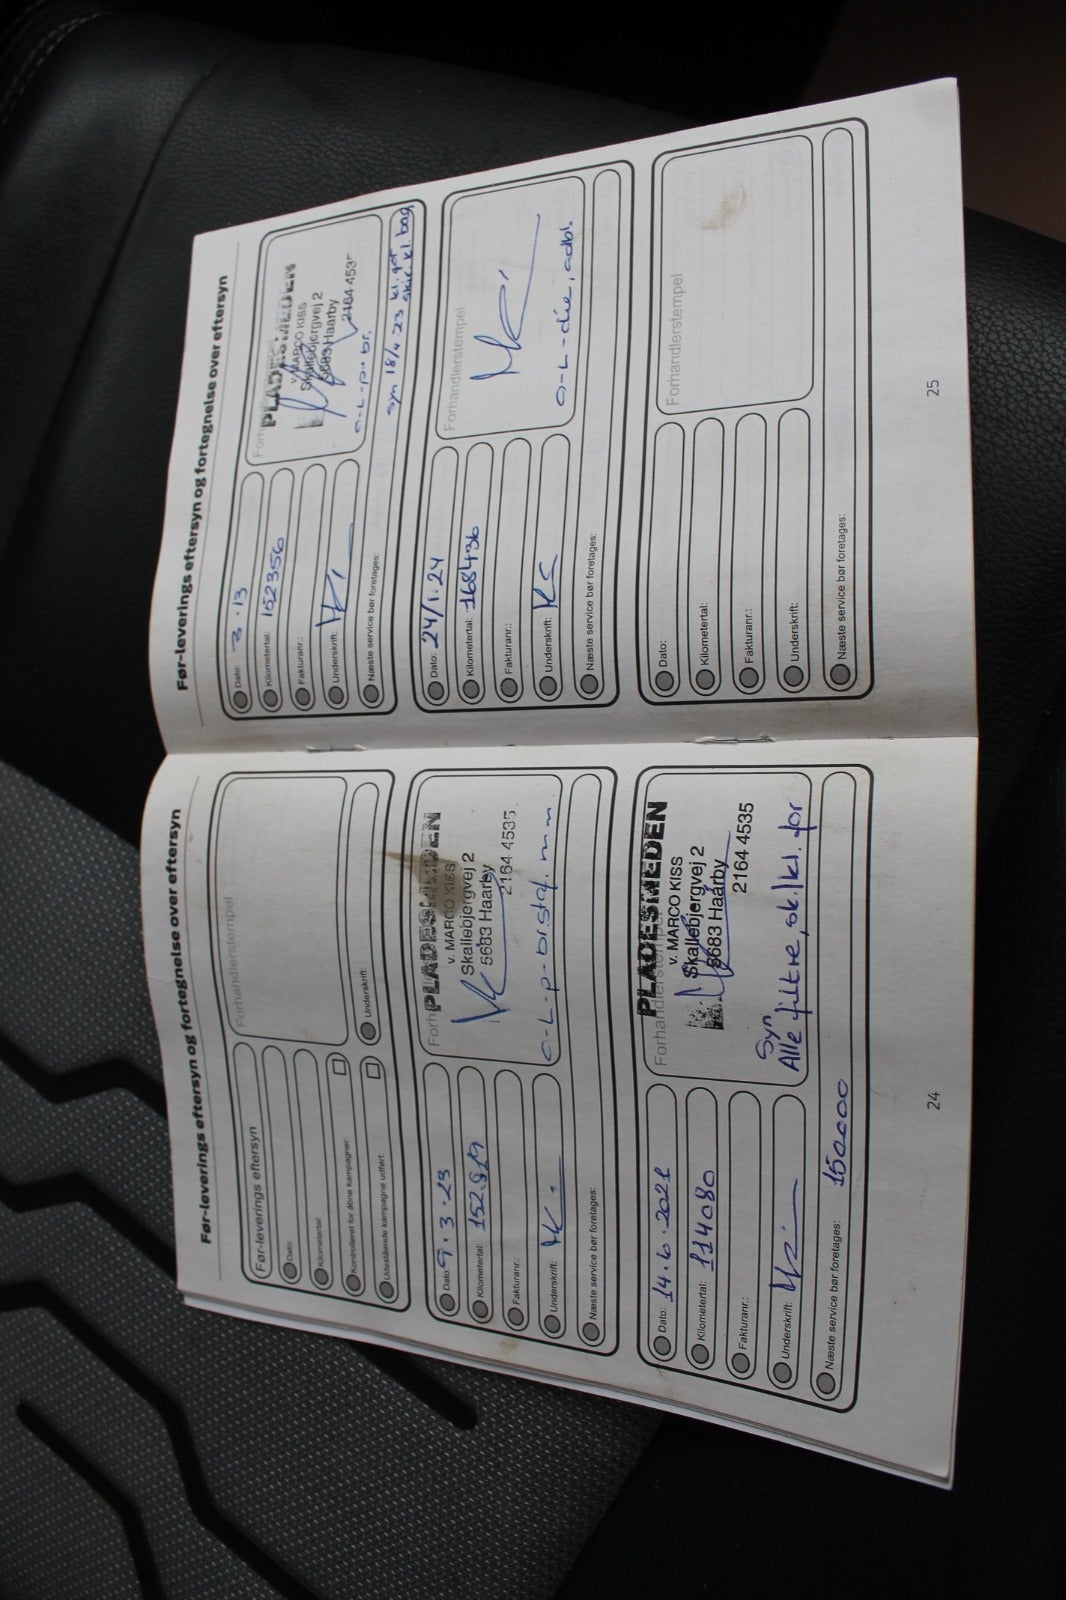 Før-leverings eftersyn og fortegnelse over eftersyn
Før-leverings eftersyn
Dato:
Kilometertal:
Kontrolleret for åbne kampagner:
Udestående kampagne udført:
Underskrift:
Forhandlerstempel
Dato: 9.3.23
Kilometertal:
Fakturanr.:
Underskrift:
Næste service bør foretages:
PLADESMEDEN
v. MARCO KISS
Skallebjergvej 2
5683 Haarby
2164 4535
Dato: 14.6.2021
Kilometertal: 114080
Fakturanr.:
Underskrift:
Næste service bør foretages: 150000
Forhandlerstempel
PLADESMEDEN
v. MARCO KISS
Skallebjergvej 2
5683 Haarby
2164 4535
Syn
Alle filtre, sk./kl. for
24
Før-leverings eftersyn og fortegnelse over eftersyn
Dato: 3.13
Kilometertal: 152356
Fakturanr.:
Underskrift:
Næste service bør foretages:
PLADESMEDEN
v. MARCO KISS
Skallebjergvej 2
5683 Haarby
2164 453
o-L-p+br.
syn 18/4 23 kl.
skiv. kl. bag
Dato: 24/1.24
Kilometertal: 168436
Fakturanr.:
Underskrift:
Næste service bør foretages:
Forhandlerstempel
o-L-die, adbl.
Dato:
Kilometertal:
Fakturanr.:
Underskrift:
Næste service bør foretages:
Forhandlerstempel
25